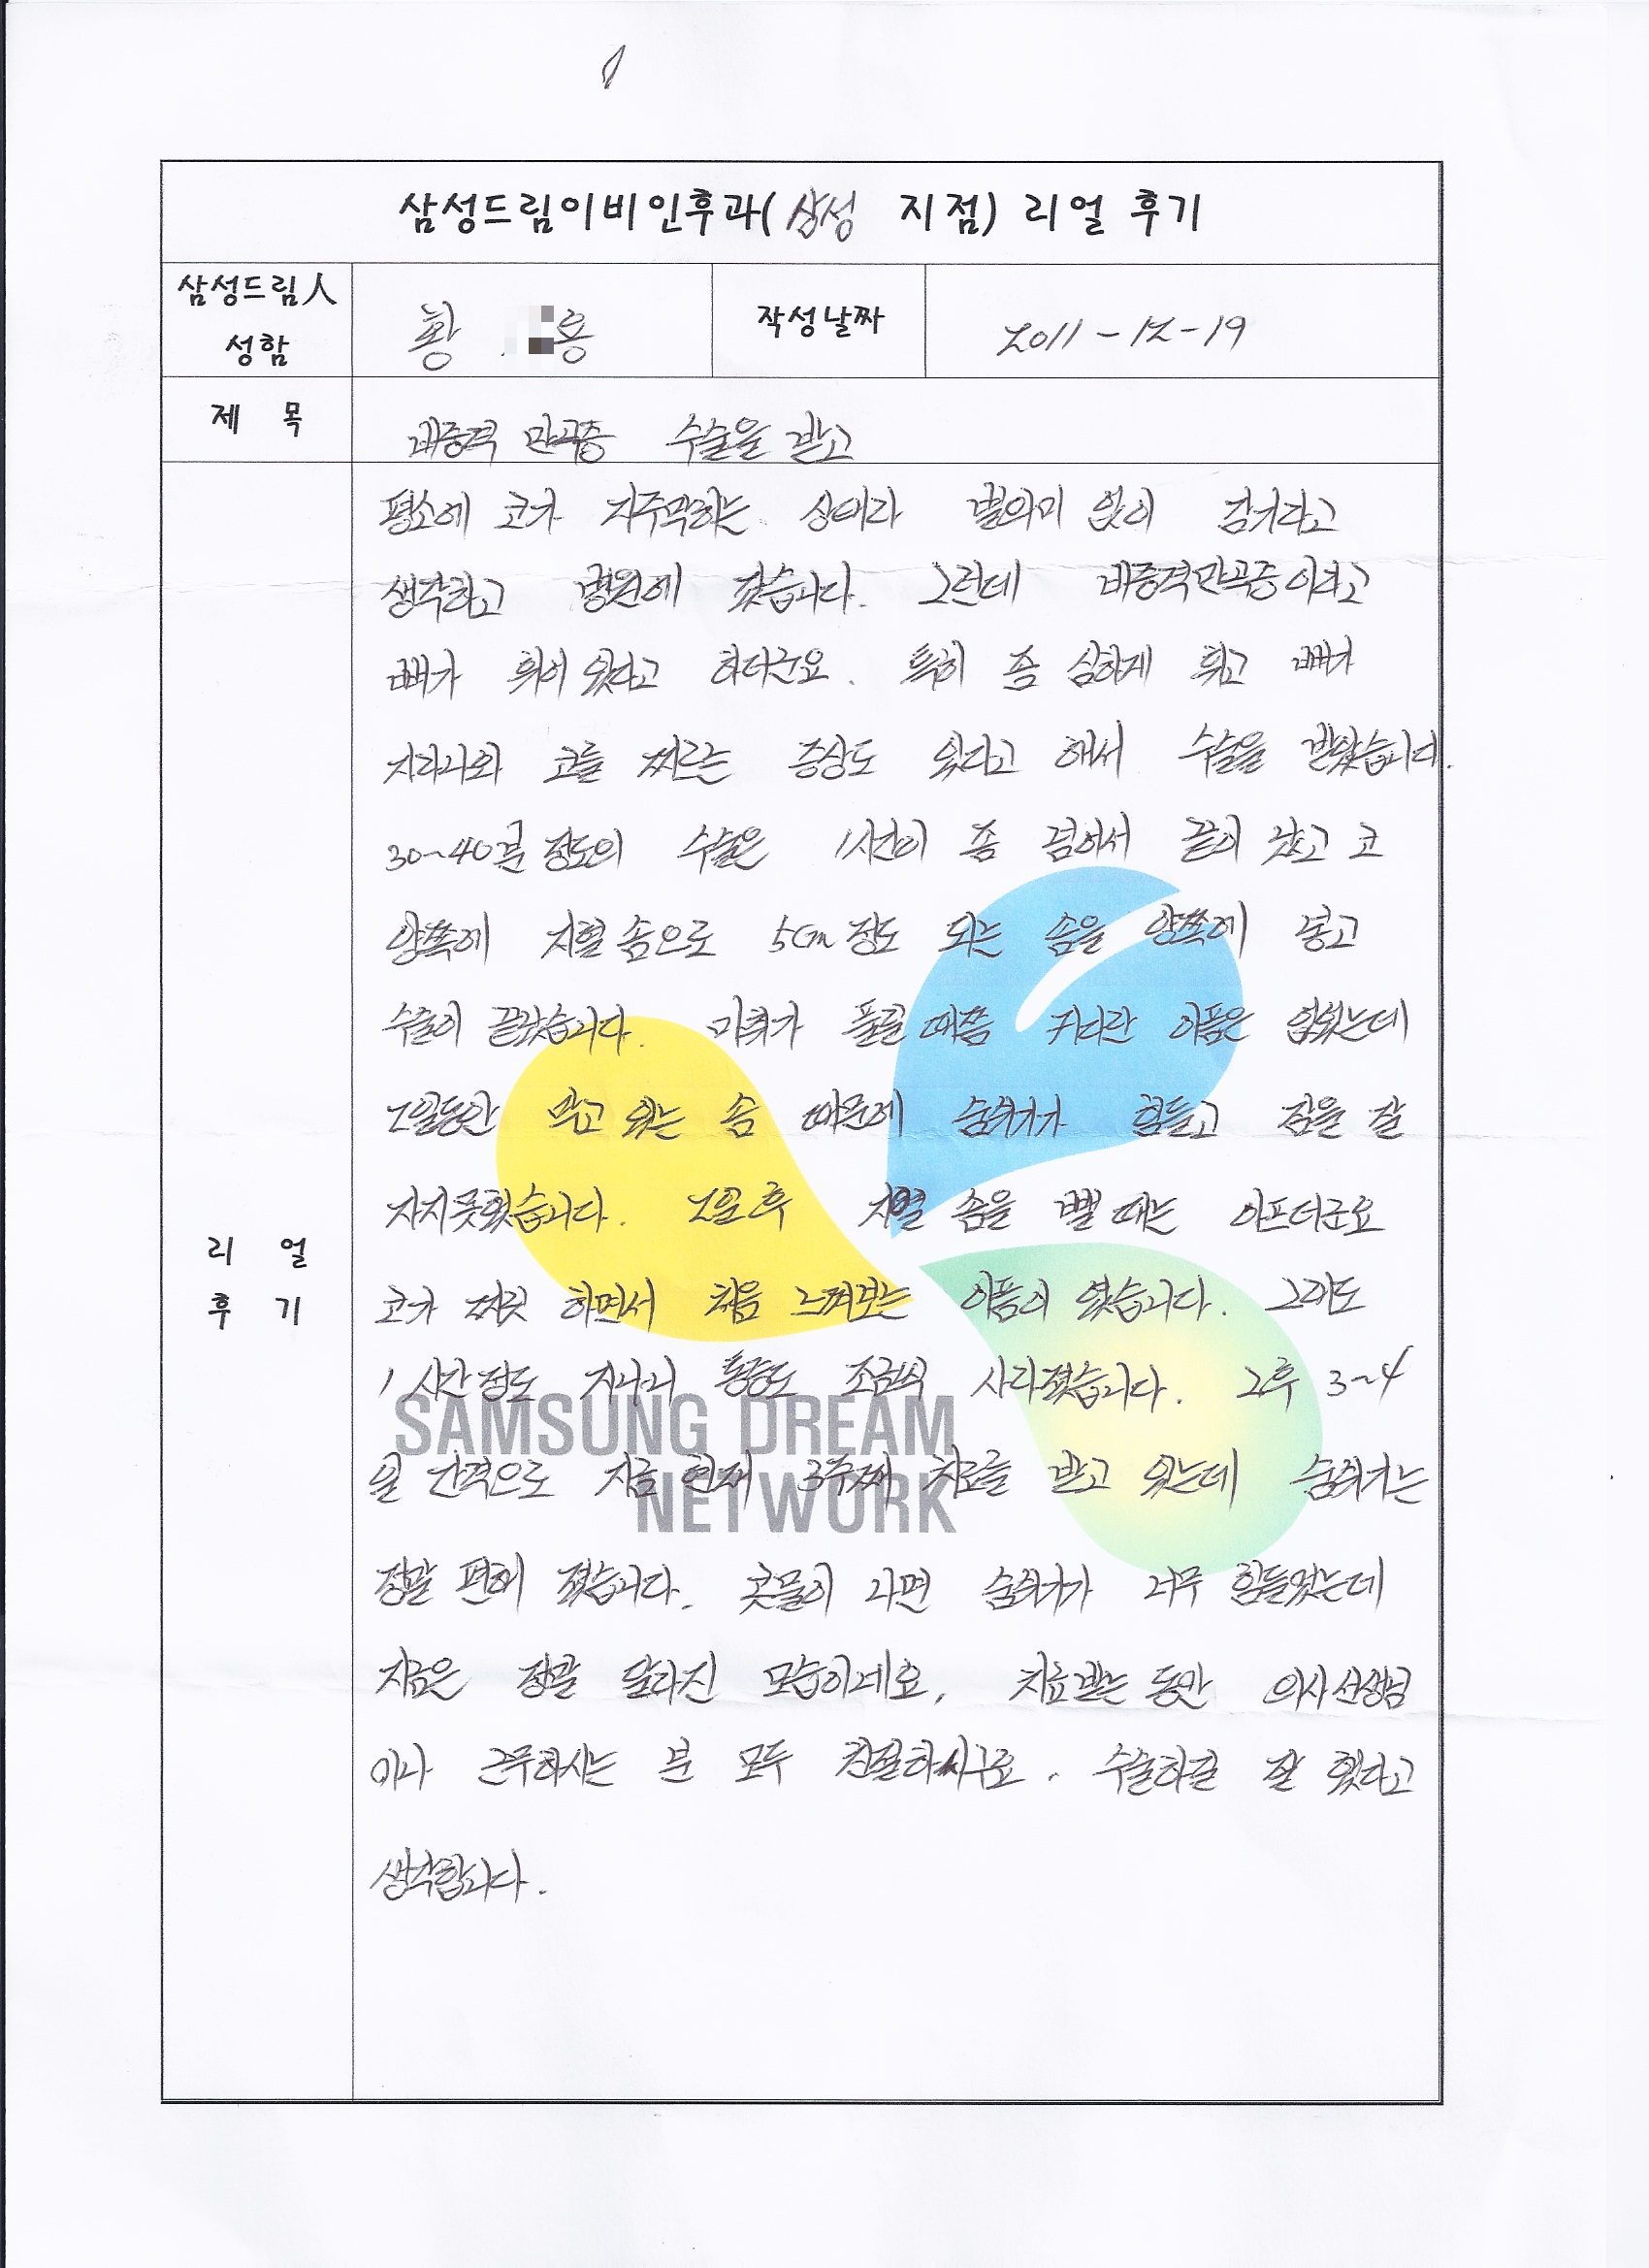 삼성드림이비인후과(삼성 지점) 리얼 후기
삼성드림人
성함
황 용
작성날짜
2011-12-19
제 목
비중격 만곡증 수술을 받고
평소에 코가 자주막히는 상이라 별의미 없이 감기라고
생각하고 병원에 갔습니다. 그런데 비중격만곡증이라고
뼈가 휘어 있다고 하더군요. 특히 좀 심하게 휘고 뼈가
자라나와 코를 찌르는 증상도 있다고 해서 수술을 받았습니다.
30~40분 정도의 수술은 1시간이 좀 넘어서 끝이 났고 코
양쪽에 지혈 솜으로 5cm 정도 되는 솜을 양쪽에 넣고
수술이 끝났습니다. 마취가 풀릴 때쯤 커다란 아픔은 없었는데
2일동안 막고 있는 솜 때문에 숨쉬기가 힘들고 잠을 잘
자지못했습니다. 2일 후 지혈 솜을 뺄 때는 아프더군요
코가 찌릿 하면서 처음 느껴보는 아픔이 였습니다. 그래도
1시간 정도 지나니 통증도 조금씩 사라졌습니다. 그후 3~4
일 간격으로 지금 현재 3주째 치료를 받고 있는데 숨쉬기는
정말 편해 졌습니다. 콧물이 나면 숨쉬기가 너무 힘들었는데
지금은 정말 달라진 모습이네요. 치료받는 동안 의사선생님
이나 근무하시는 분 모두 친절하시구요. 수술하길 잘 했다고
생각합니다.
리 얼
후 기
SAMSUNG DREAM
NETWORK